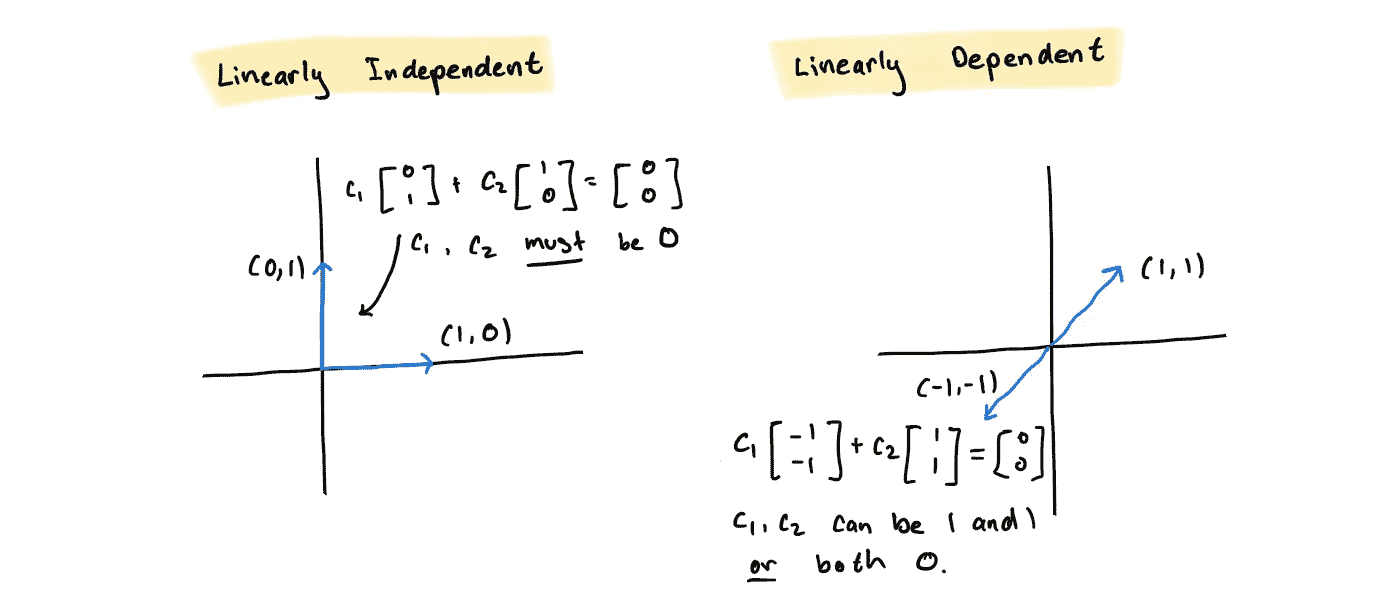 Linearly Independent
c₁ [0 1] + c₂ [1 0] = [0 0]
c₁, c₂ must be 0
(0,1)
(1,0)
Linearly Dependent
(1,1)
(-1,-1)
c₁ [-1 -1] + c₂ [1 1] = [0 0]
c₁, c₂ can be 1 and 1
or both 0.